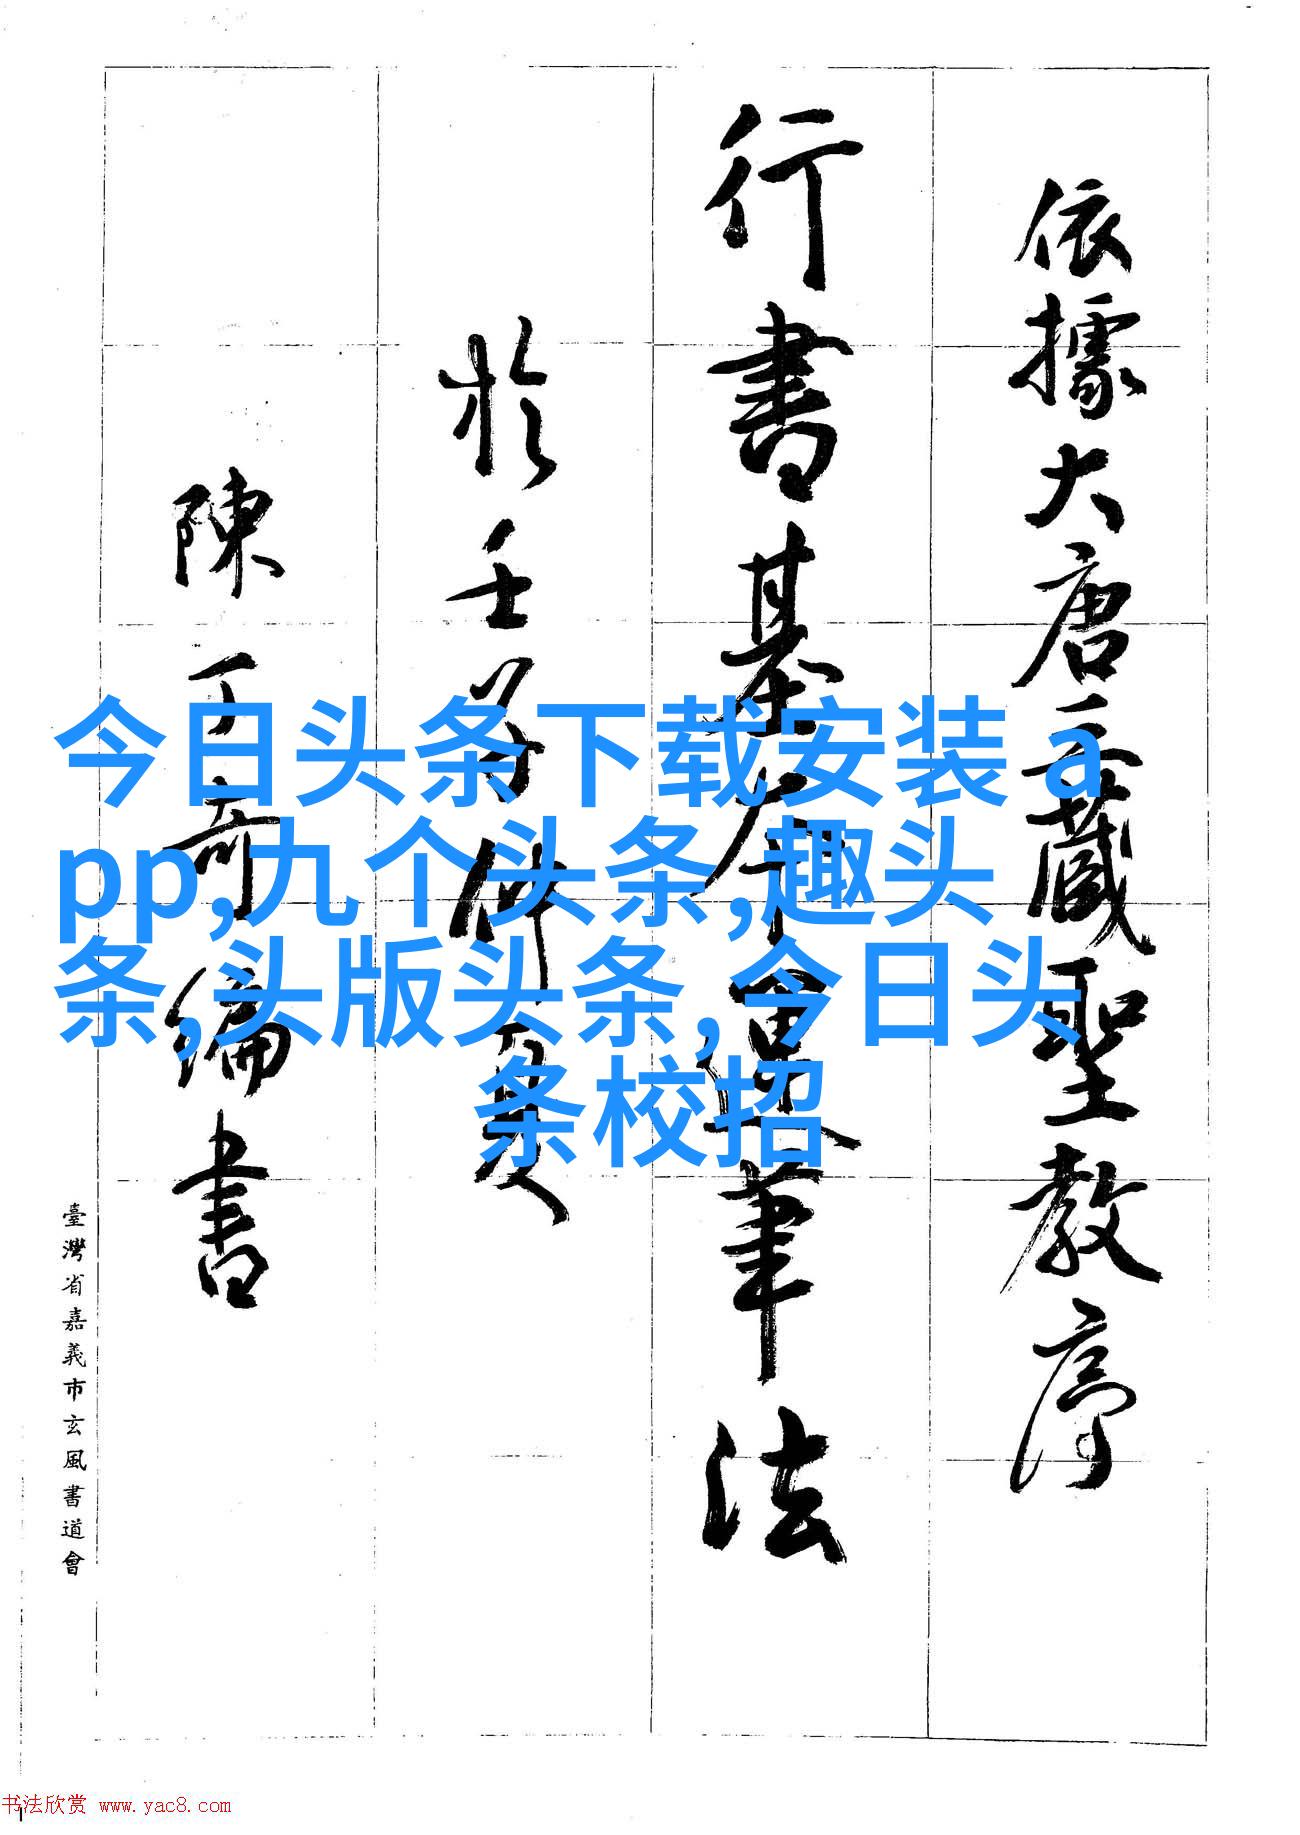 依據大唐三藏聖教序
行書基本運筆法
於壬子仲夏
陳丁奇編書
臺灣省嘉義市玄風書道會
今日头条下载安装 a
pp,九个头条,趣头
条,头版头条,今日头
条校招
书法欣赏 www.yac8.com